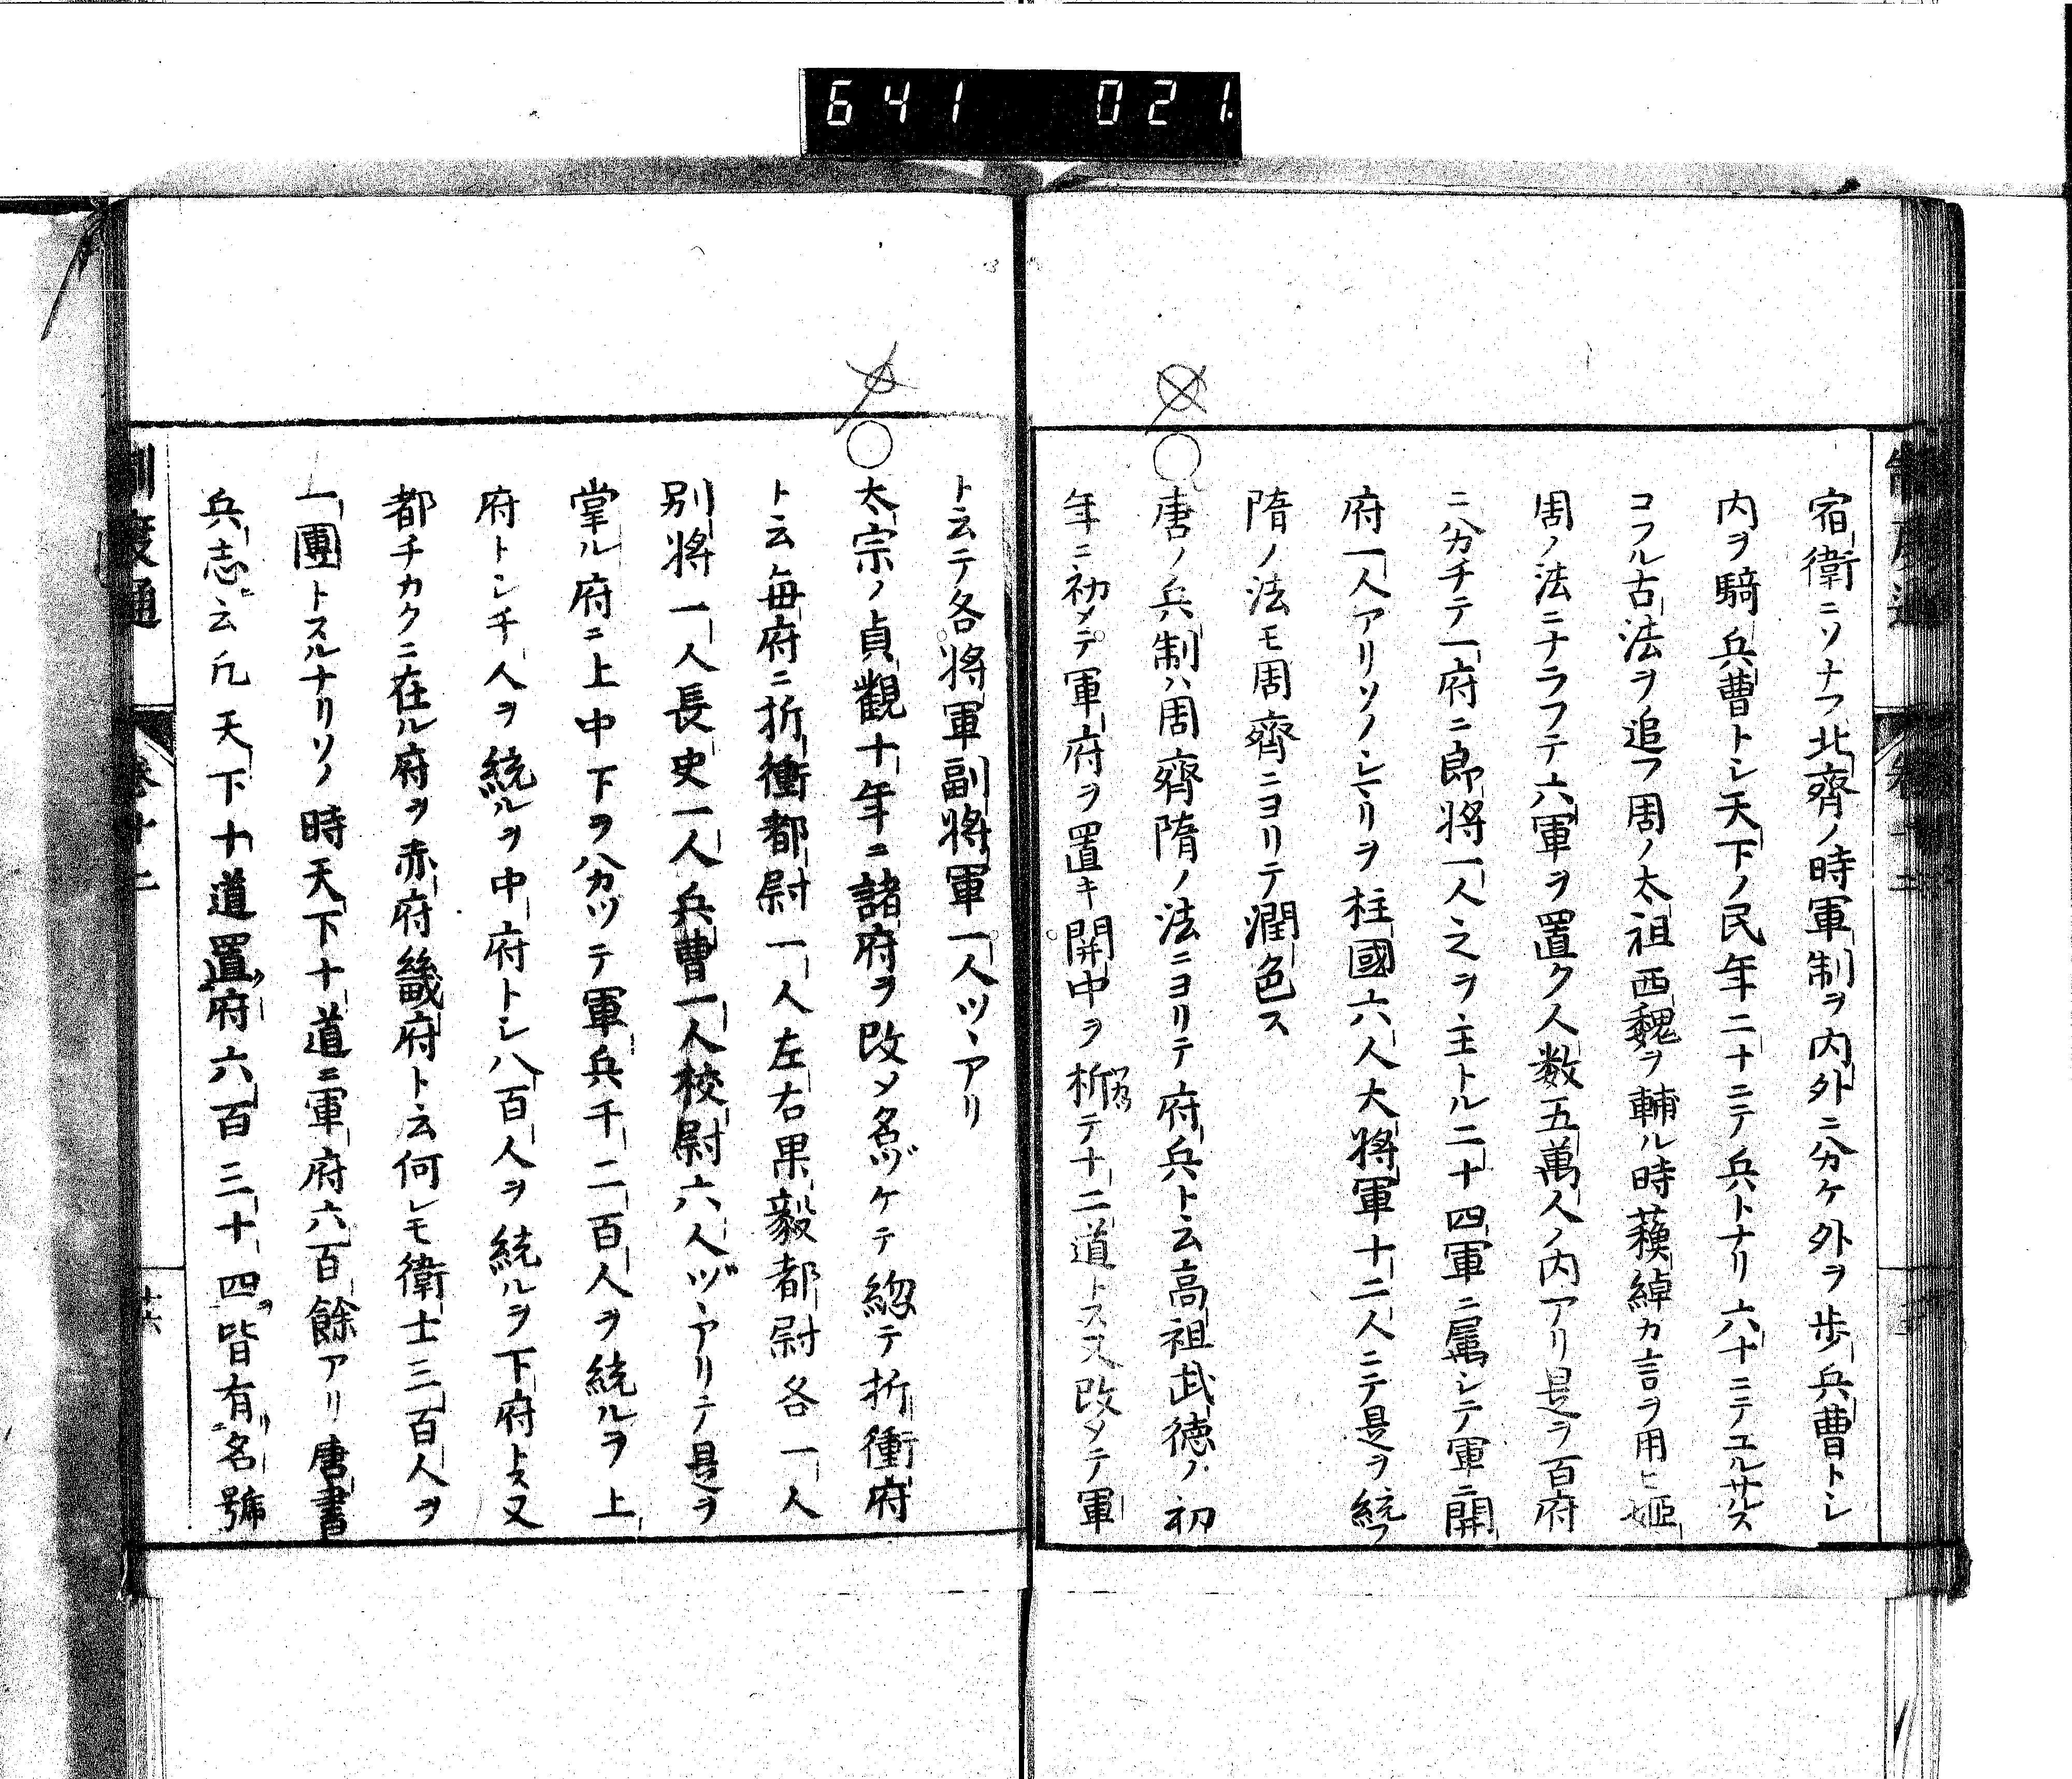 641 021.
宿衛ニソナフ北齊ノ時軍制ヲ内外ニ分ケ外ヲ歩兵曹トシ
内ヲ騎兵曹トシ天下ノ民年二十ニテ兵トナリ六十ニテユルサルス
コフル古法ヲ追フ周ノ太祖西魏ヲ輔ル時蘓綽カ言ヲ用ヒ姬
周ノ法ニナラフテ六軍ヲ置ク人数五萬人ノ内アリ是ヲ百府
ニ分チテ一府ニ郎將一人之ヲ主トル二十四軍ニ屬シテ軍ニ開
府一人アリソノシマリヲ柱國六人大將軍十二人ニテ是ヲ統フ
隋ノ法モ周齊ニヨリテ潤色ス
○唐ノ兵制ハ周齊隋ノ法ニヨリテ府兵ト云高祖武徳ノ初
年ニ初メテ軍府ヲ置キ開中ヲ析テ十二道トス又改メテ軍
ト云テ各將軍副將軍一人ツヽアリ
○太宗ノ貞觀十年ニ諸府ヲ改メ名ヅケテ総テ折衝府
ト云毎府ニ折衝都尉一人左右果毅都尉各一人
別將一人長史一人兵曹一人校尉六人ヅヽアリテ是ヲ
掌ル府ニ上中下ヲ分ツテ軍兵千二百人ヲ統ルヲ上
府トシ千人ヲ統ルヲ中府トシ八百人ヲ統ルヲ下府トス又
都チカクニ在ル府ヲ赤府畿府ト云何レモ衛士三百人ヲ
一團トスルナリソノ時天下十道ニ軍府六百餘アリ唐書
兵志ニ云凡天下十道置府六百三十四皆有名號
制度通 卷十二